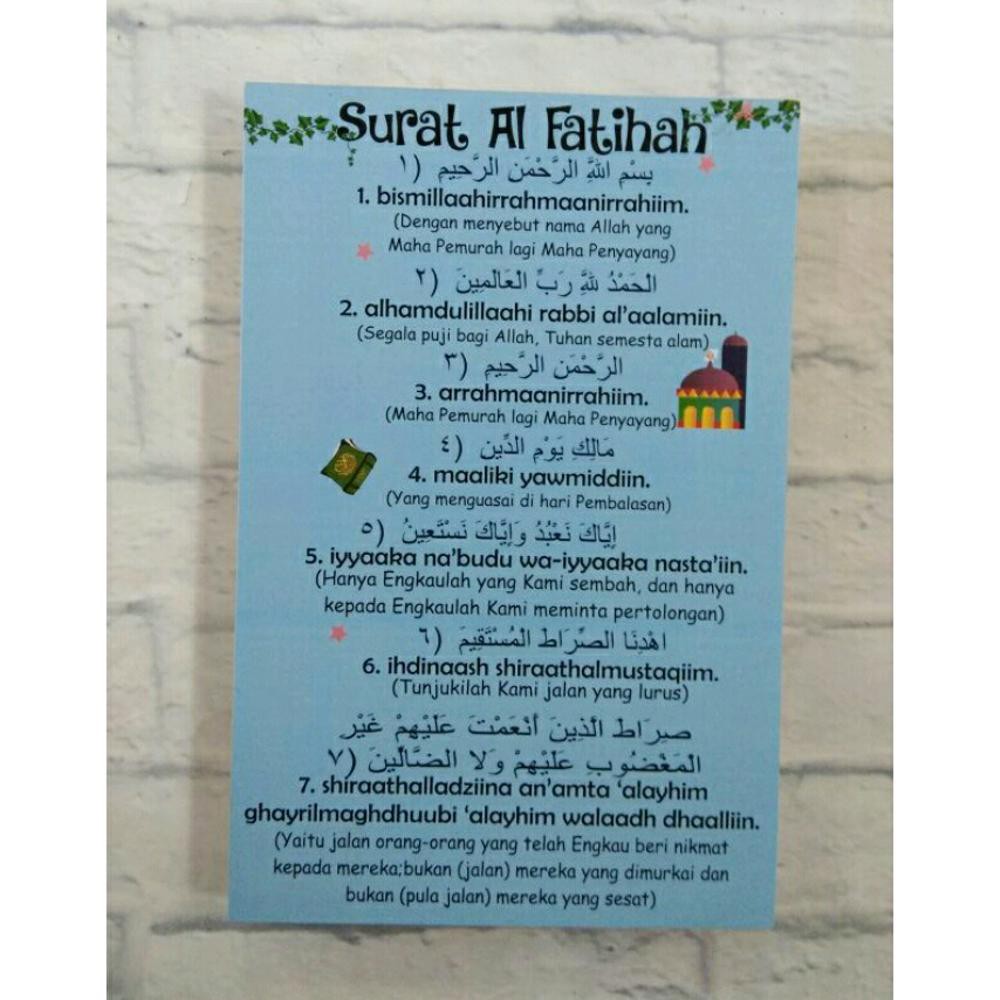 Surat Al Fatihah
بِسْمِ اللَّهِ الرَّحْمَنِ الرَّحِيمِ (١
1. bismillaahirrahmaanirrahiim.
(Dengan menyebut nama Allah yang
Maha Pemurah lagi Maha Penyayang)
الْحَمْدُ لِلَّهِ رَبِّ الْعَالَمِينَ (٢
2. alhamdulillaahi rabbi al'aalamiin.
(Segala puji bagi Allah, Tuhan semesta alam)
الرَّحْمَنِ الرَّحِيمِ (٣
3. arrahmaanirrahiim.
(Maha Pemurah lagi Maha Penyayang)
مَالِكِ يَوْمِ الدِّينِ (٤
4. maaliki yawmiddiin.
(Yang menguasai di hari Pembalasan)
إِيَّاكَ نَعْبُدُ وَإِيَّاكَ نَسْتَعِينُ (٥
5. iyyaaka na'budu wa-iyyaaka nasta'iin.
(Hanya Engkaulah yang Kami sembah, dan hanya
kepada Engkaulah Kami meminta pertolongan)
اهْدِنَا الصِّرَاطَ الْمُسْتَقِيمَ (٦
6. ihdinaash shiraathalmustaqiim.
(Tunjukilah Kami jalan yang lurus)
صِرَاطَ الَّذِينَ أَنْعَمْتَ عَلَيْهِمْ غَيْرِ
الْمَغْضُوبِ عَلَيْهِمْ وَلَا الضَّالِّينَ (٧
7. shiraathalladziina an'amta 'alayhim
ghayrilmaghdhuubi 'alayhim walaadh dhaalliin.
(Yaitu jalan orang-orang yang telah Engkau beri nikmat
kepada mereka;bukan (jalan) mereka yang dimurkai dan
bukan (pula jalan) mereka yang sesat)